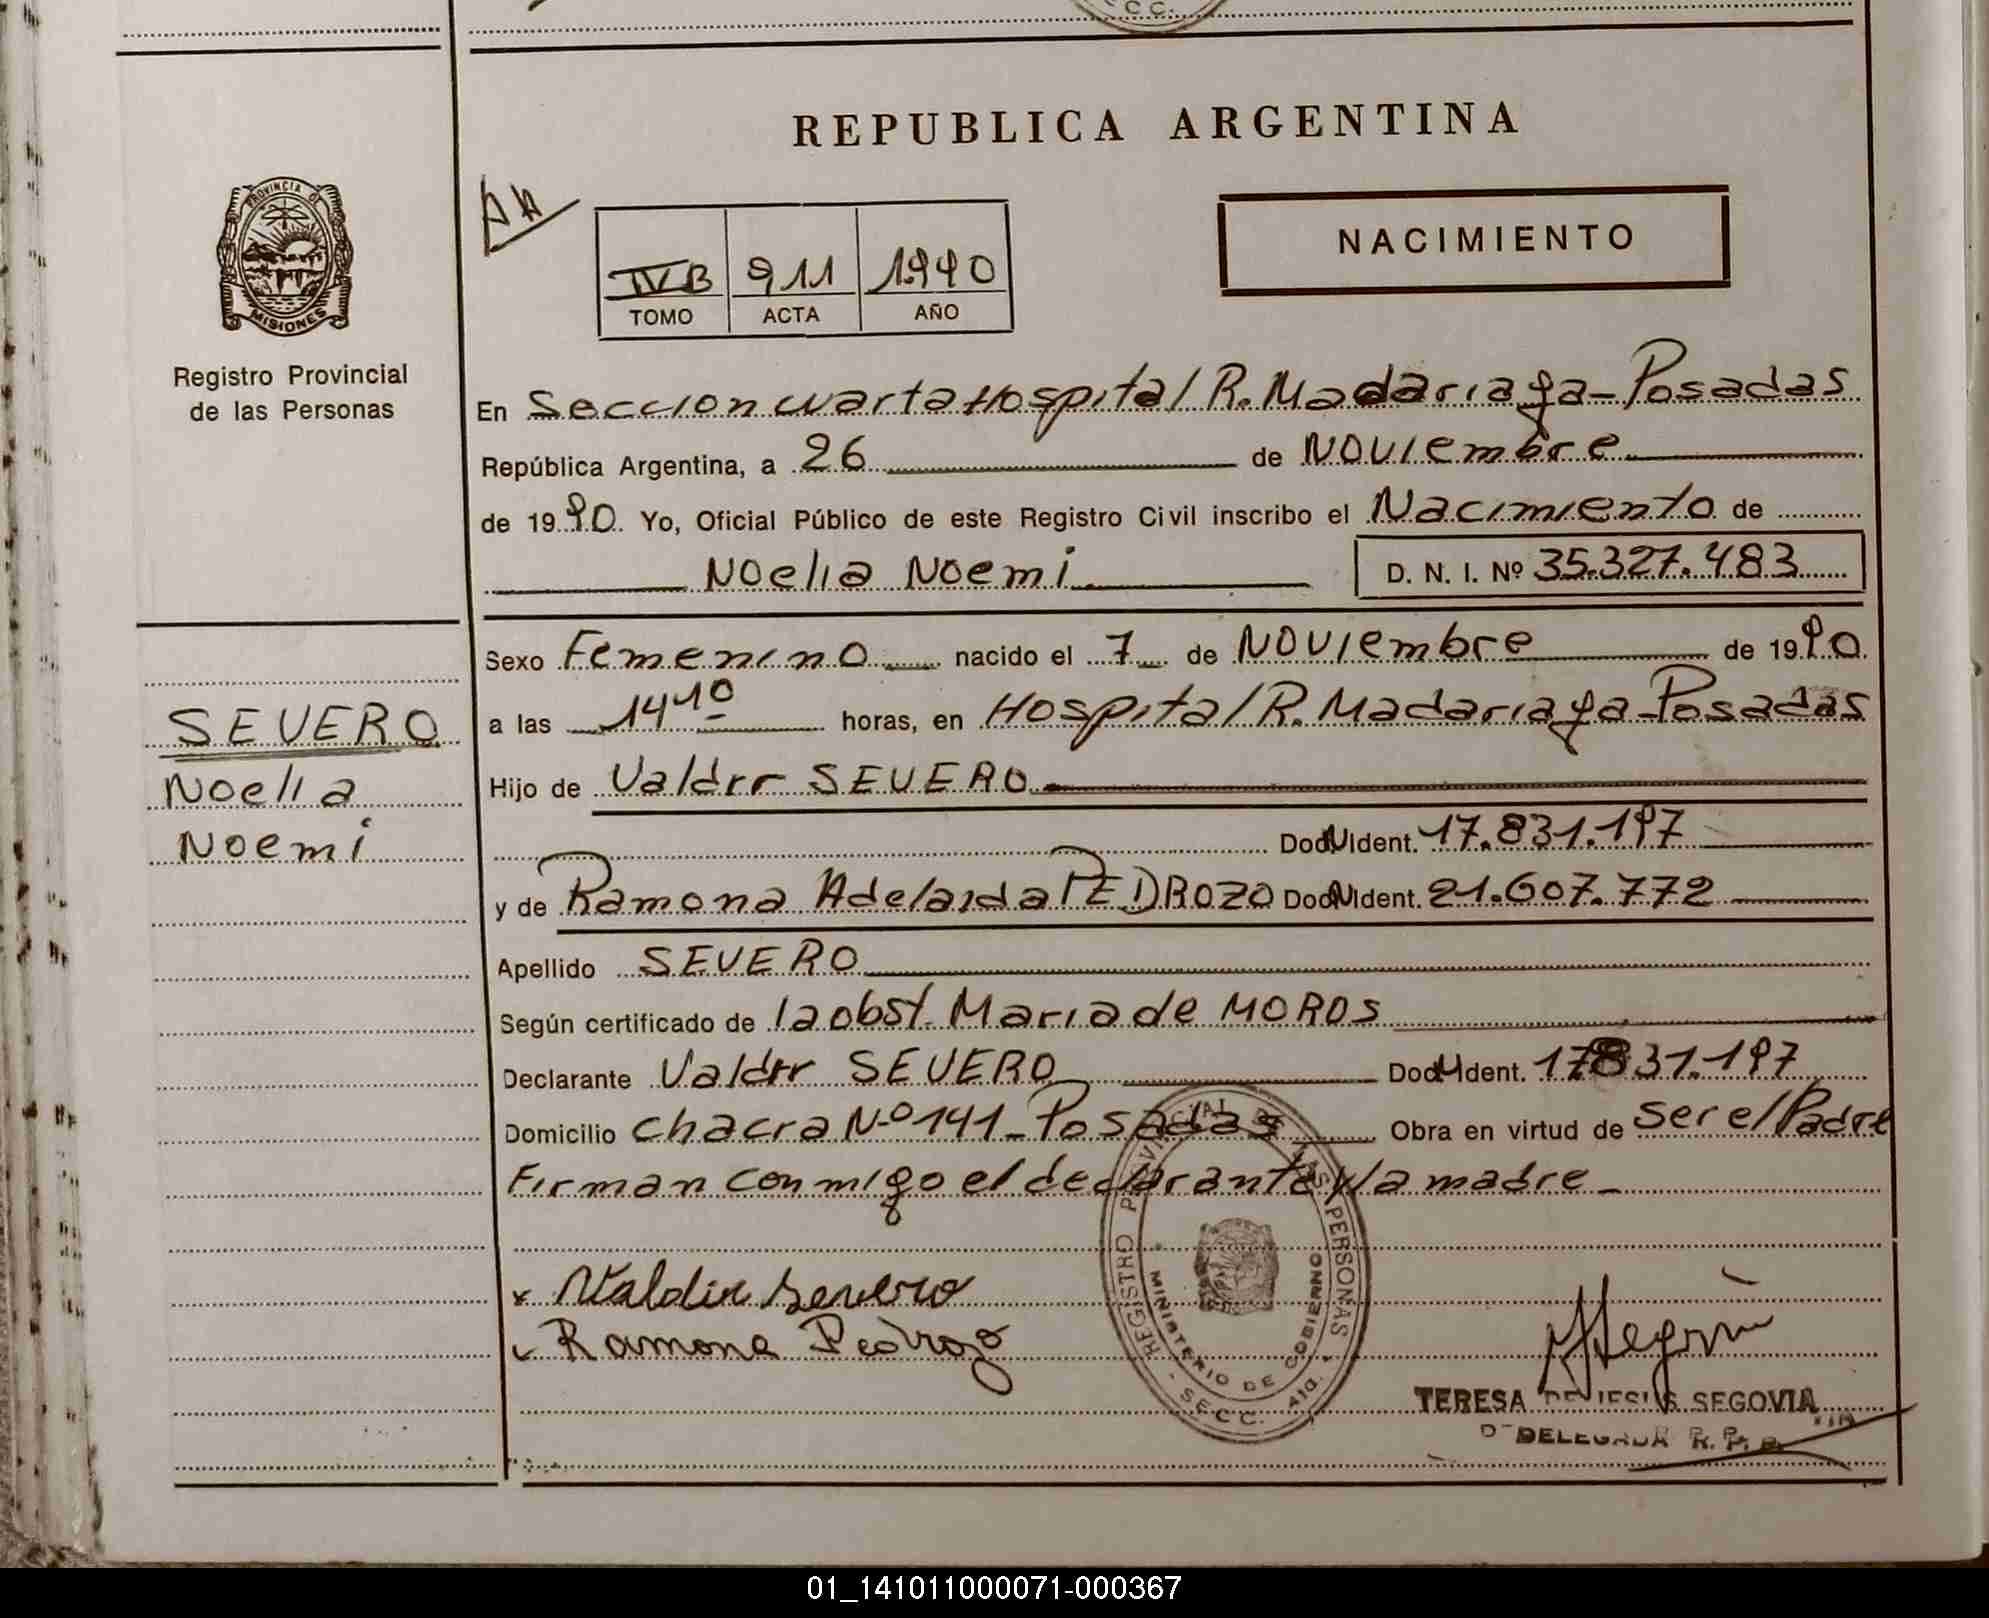 REPUBLICA ARGENTINA
NACIMIENTO
IVB 911 1990
TOMO ACTA AÑO
PROVINCIA DE
MISIONES
Registro Provincial
de las Personas
En Seccion cuarta Hospital R. Madariaga - Posadas
República Argentina, a 26 de Noviembre
de 1990. Yo, Oficial Público de este Registro Civil inscribo el Nacimiento de
Noelia Noemi
D. N. I. Nº 35.327.483
Sexo Femenino nacido el 7 de Noviembre de 1990.
a las 14 10 horas, en Hospital R. Madariaga - Posadas
Hijo de Valdir SEVERO
Doc. N Ident. 17.831.197
y de Ramona Adelaida PEDROZO Doc. N Ident. 21.607.772
Apellido SEVERO
Según certificado de la obst. Maria de MOROS
Declarante Valdir SEVERO Doc. N Ident. 17.831.197
Domicilio chacra Nº 141 - Posadas Obra en virtud de ser el Padre
Firman conmigo el declarante y la madre -
SEVERO
Noelia
Noemi
x Valdir Severo
Ramona Pedrozo
REGISTRO PROVINCIAL DE LAS PERSONAS
MINISTERIO DE GOBIERNO
SECC. 4ta.
TERESA DE JESUS SEGOVIA
DELEGADA R. P.
01_141011000071-000367